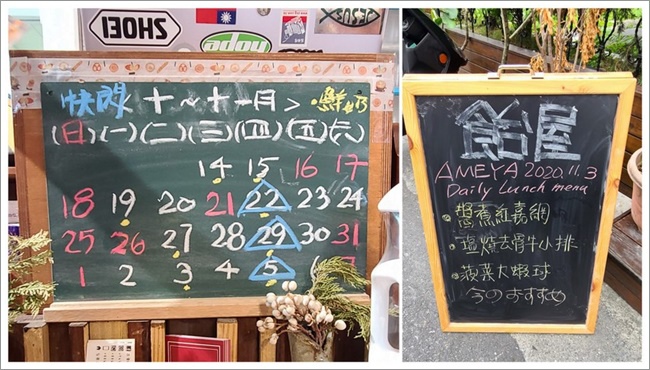 SHOEI
adoy
JESUS
快閃 < 十～十一月 >
(日)(一)(二)(三)(四)(五)(六)
14 15 16 17
18 19 20 21 22 23 24
25 26 27 28 29 30 31
1 2 3 4 5
飴屋
AMEYA 2020.11.3
Daily Lunch menu
醬煮紅嘉鱲
塩燒去骨牛小排
菠菜大蝦球
今のおすすめ